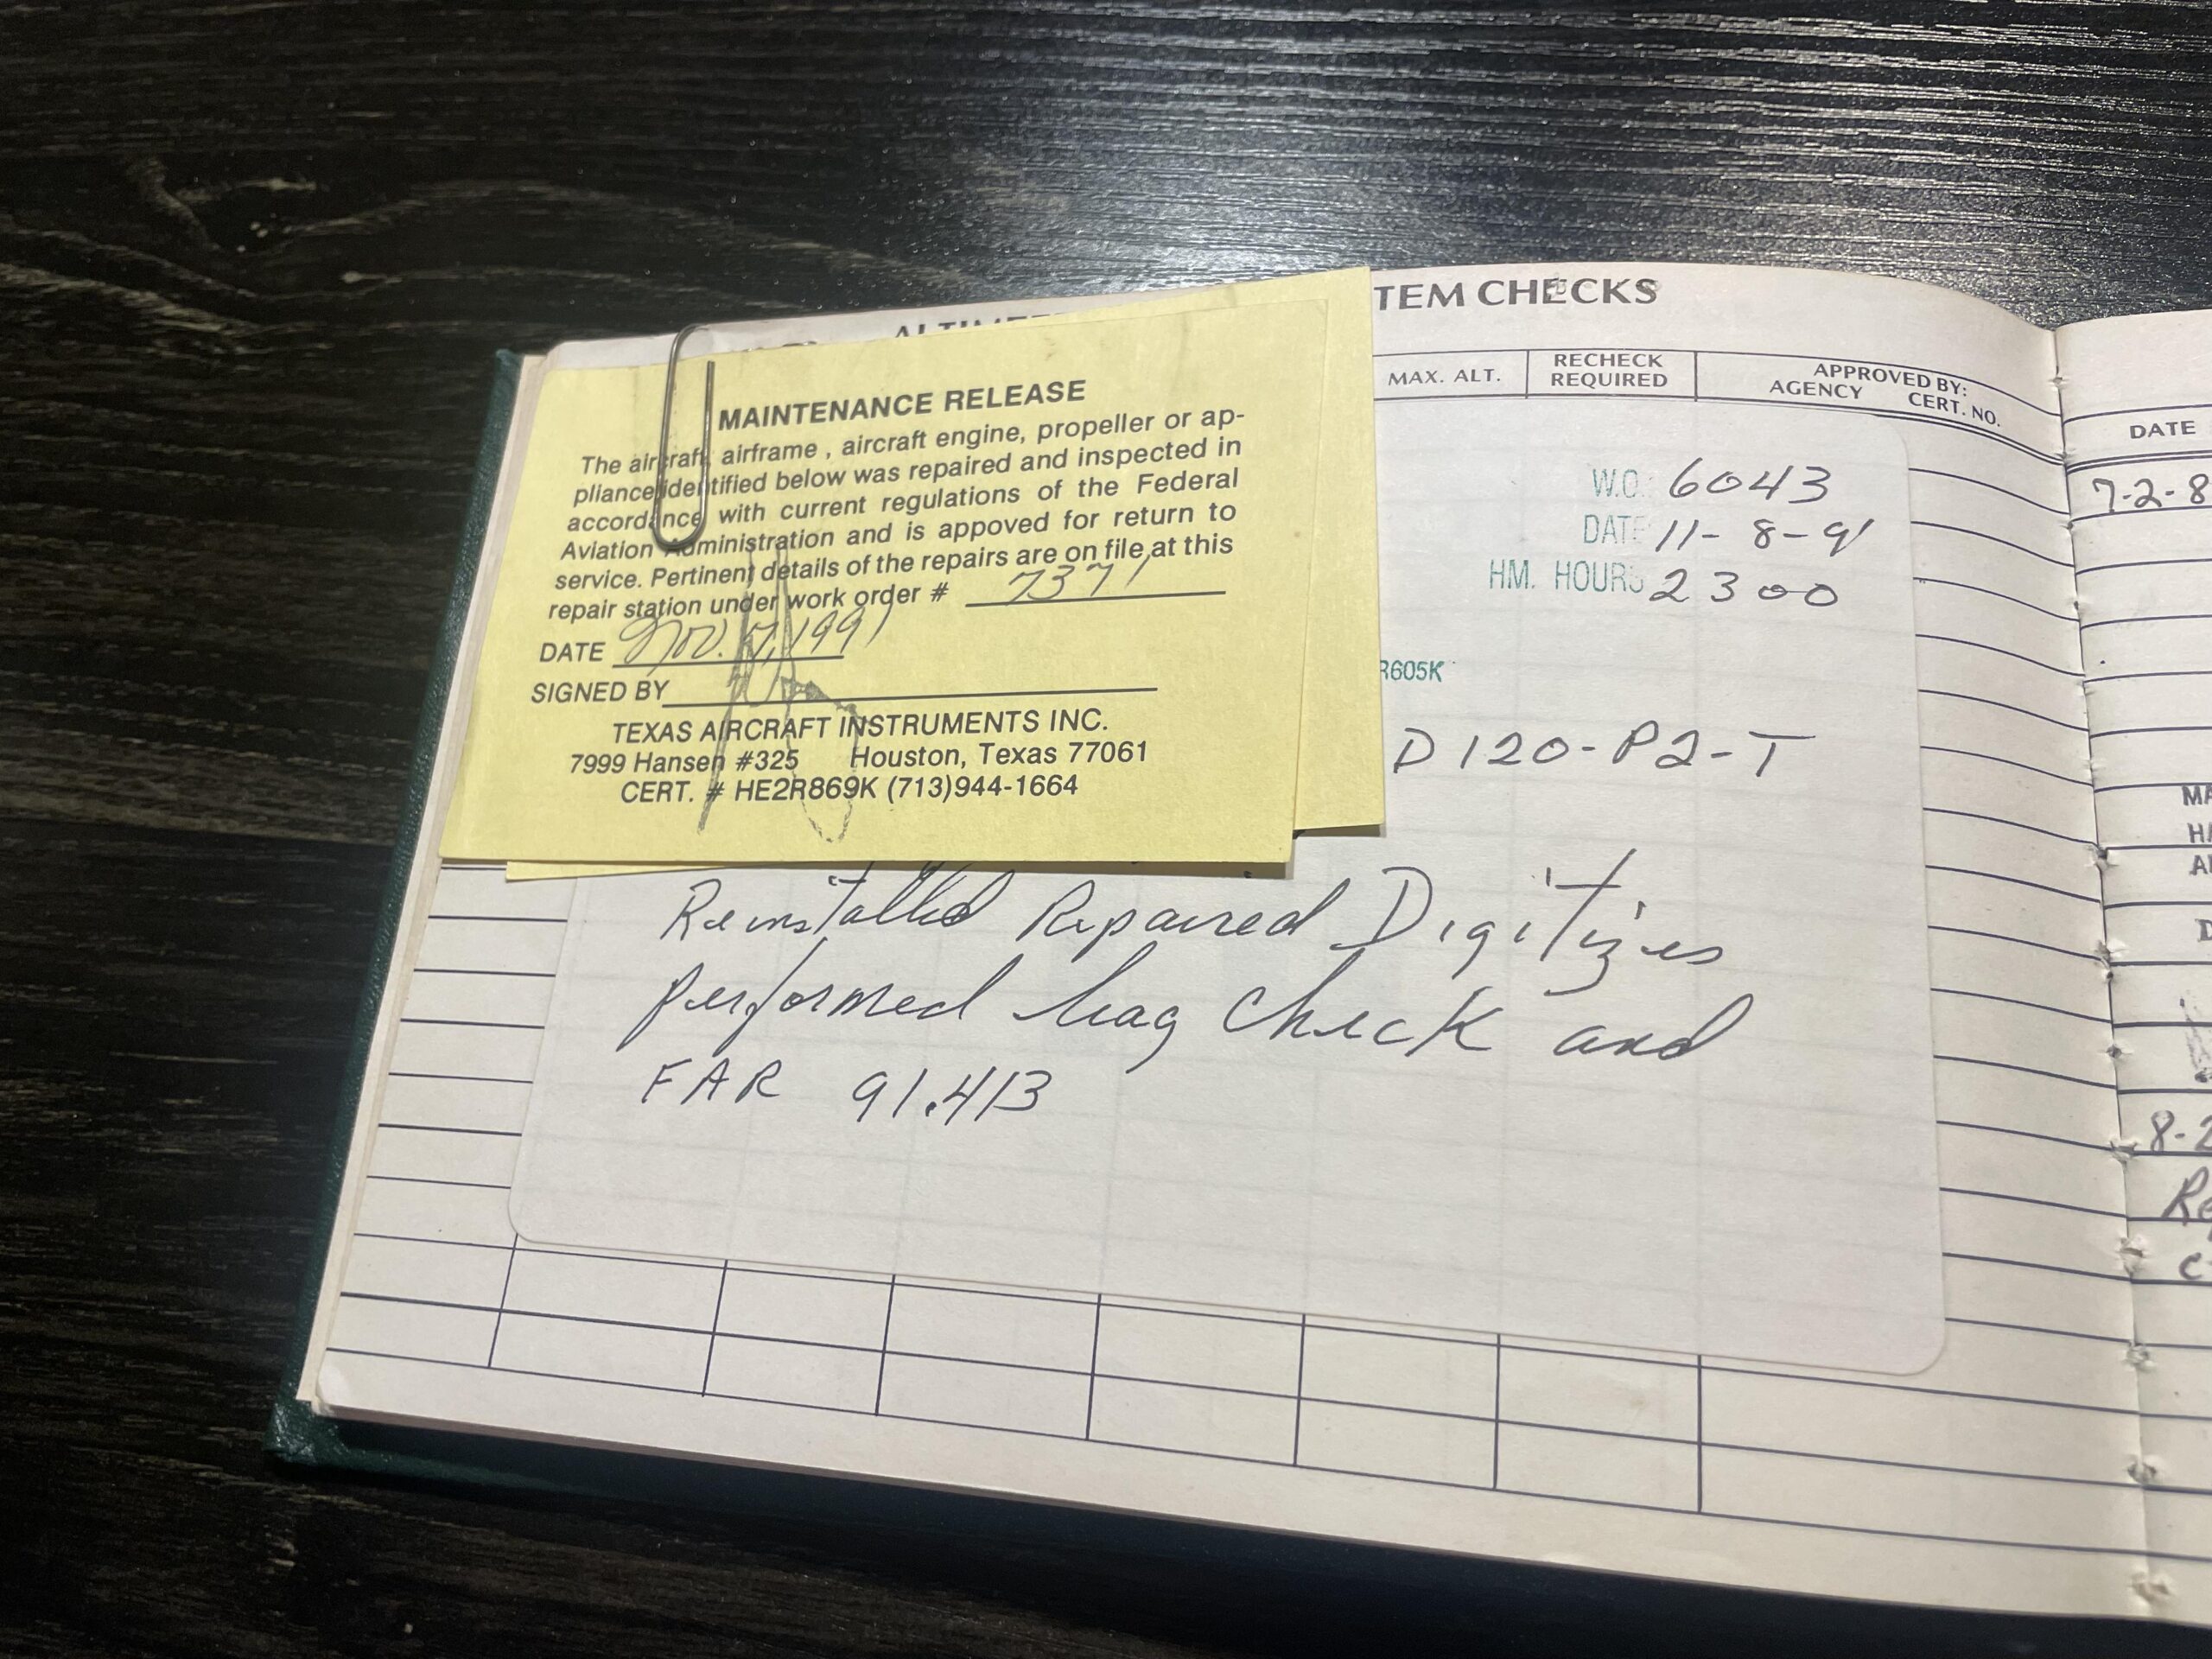 TEM CHECKS
MAX. ALT. RECHECK REQUIRED APPROVED BY: AGENCY CERT. NO.
MAINTENANCE RELEASE
The aircraft, airframe , aircraft engine, propeller or ap-
pliance identified below was repaired and inspected in
accordance with current regulations of the Federal
Aviation Administration and is appoved for return to
service. Pertinent details of the repairs are on file at this
repair station under work order # 7371
DATE Nov. 7, 1991
SIGNED BY
TEXAS AIRCRAFT INSTRUMENTS INC.
7999 Hansen #325 Houston, Texas 77061
CERT. # HE2R869K (713)944-1664
W.O. 6043
DATE 11-8-91
HM. HOURS 2300
R605K
D120-P2-T
Reinstalled Repaired Digitizer
performed leag check and
FAR 91.413
DATE
7-2-8
MA
HA
8-2
Re
C-